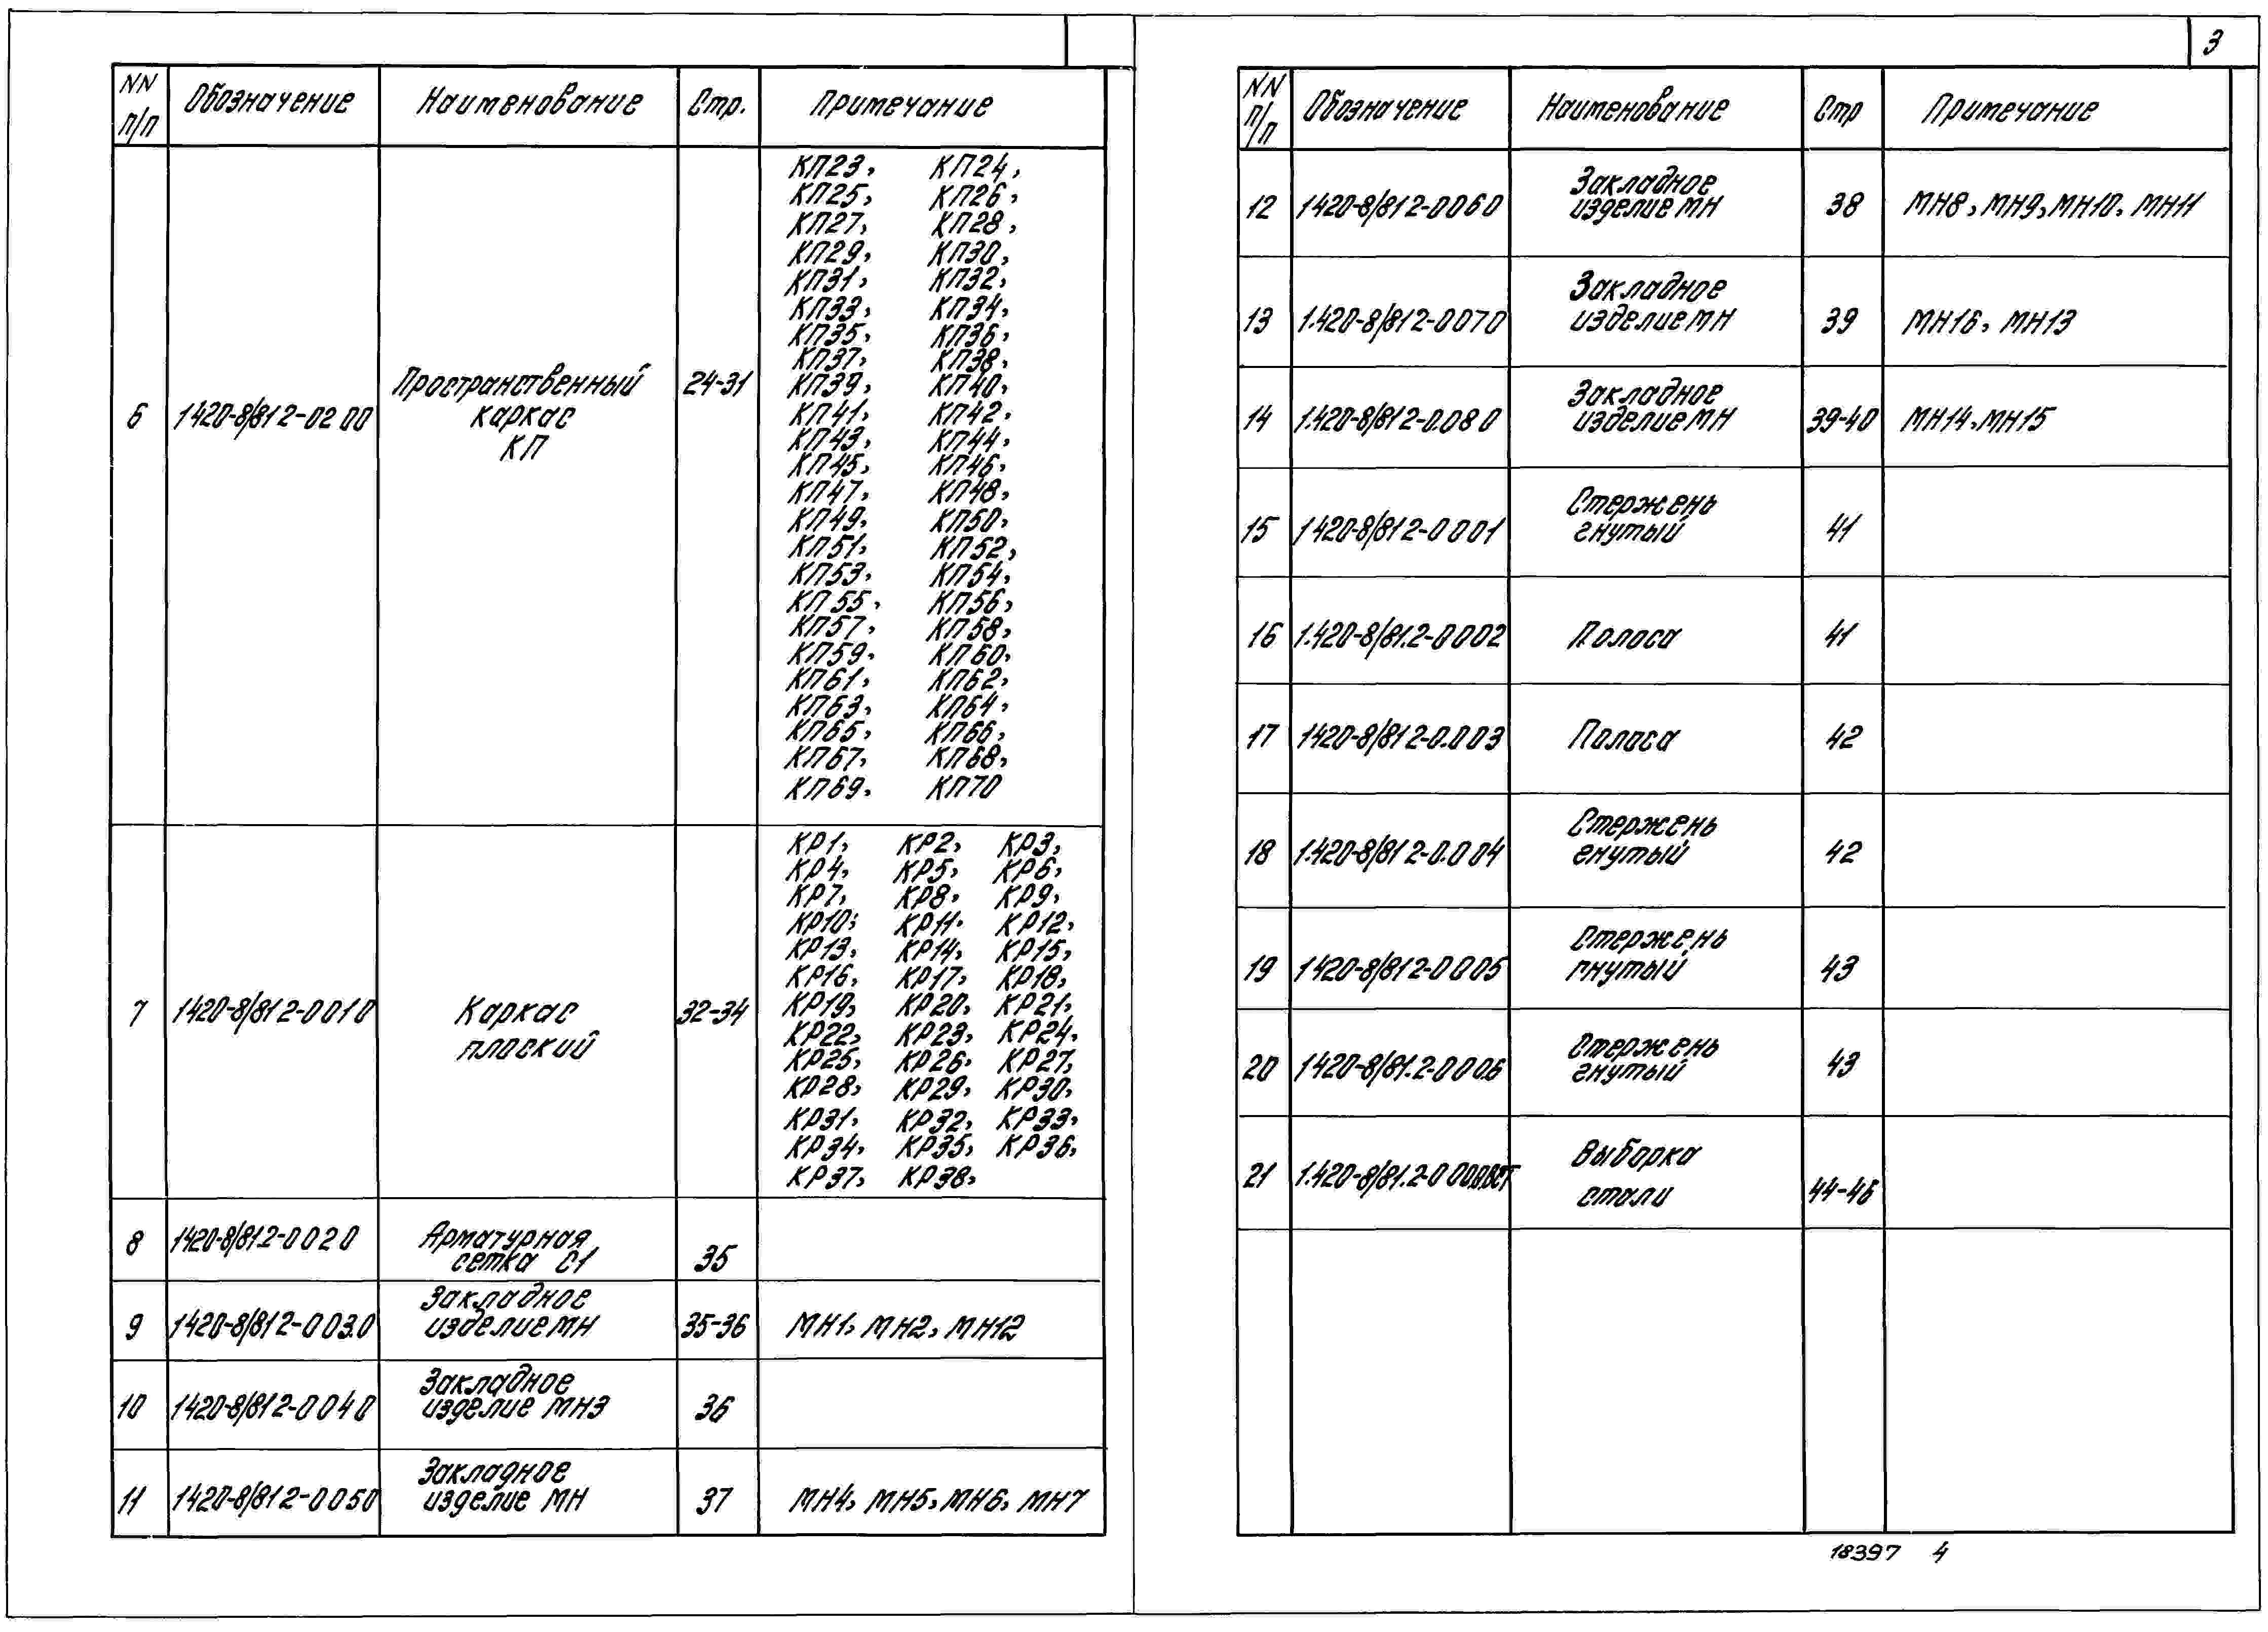 3
NN п/п Обозначение Наименование Стр. Примечание
КП23, КП24,
КП25, КП26,
КП27, КП28,
КП29, КП30,
КП31, КП32,
КП33, КП34,
КП35, КП36,
КП37, КП38,
КП39, КП40,
КП41, КП42,
КП43, КП44,
КП45, КП46,
КП47, КП48,
КП49, КП50,
КП51, КП52,
КП53, КП54,
КП55, КП56,
КП57, КП58,
КП59, КП60,
КП61, КП62,
КП63, КП64,
КП65, КП66,
КП67, КП68,
КП69, КП70
6 1420-8/812-0200 Пространственный 24-31
каркас
КП
КР1, КР2, КР3,
КР4, КР5, КР6,
КР7, КР8, КР9,
КР10, КР11, КР12,
КР13, КР14, КР15,
КР16, КР17, КР18,
КР19, КР20, КР21,
КР22, КР23, КР24,
КР25, КР26, КР27,
КР28, КР29, КР30,
КР31, КР32, КР33,
КР34, КР35, КР36,
КР37, КР38,
7 1420-8/812-0010 Каркас 32-34
плоский
8 1420-8/81.2-0020 Арматурная
сетка С1 35
Закладное
9 1420-8/812-003.0 изделие МН 35-36 МН1, МН2, МН12
Закладное
10 1420-8/812-0040 изделие МН3 36
Закладное
11 1420-8/812-0050 изделие МН 37 МН4, МН5, МН6, МН7
NN п/п Обозначение Наименование Стр Примечание
Закладное
12 1420-8/812-0060 изделие МН 38 МН8, МН9, МН10, МН11
Закладное
13 1.420-8/812-0070 изделие МН 39 МН16, МН13
Закладное
14 1.420-8/812-0.080 изделие МН 39-40 МН14, МН15
Стержень
15 1420-8/812-0001 гнутый 41
16 1.420-8/81.2-0002 Полоса 41
17 1420-8/812-0.003 Полоса 42
Стержень
18 1.420-8/812-0.004 гнутый 42
Стержень
19 1420-8/812-0005 гнутый 43
Стержень
20 1420-8/81.2-000.6 гнутый 43
Выборка
21 стали 44-46
18397 4